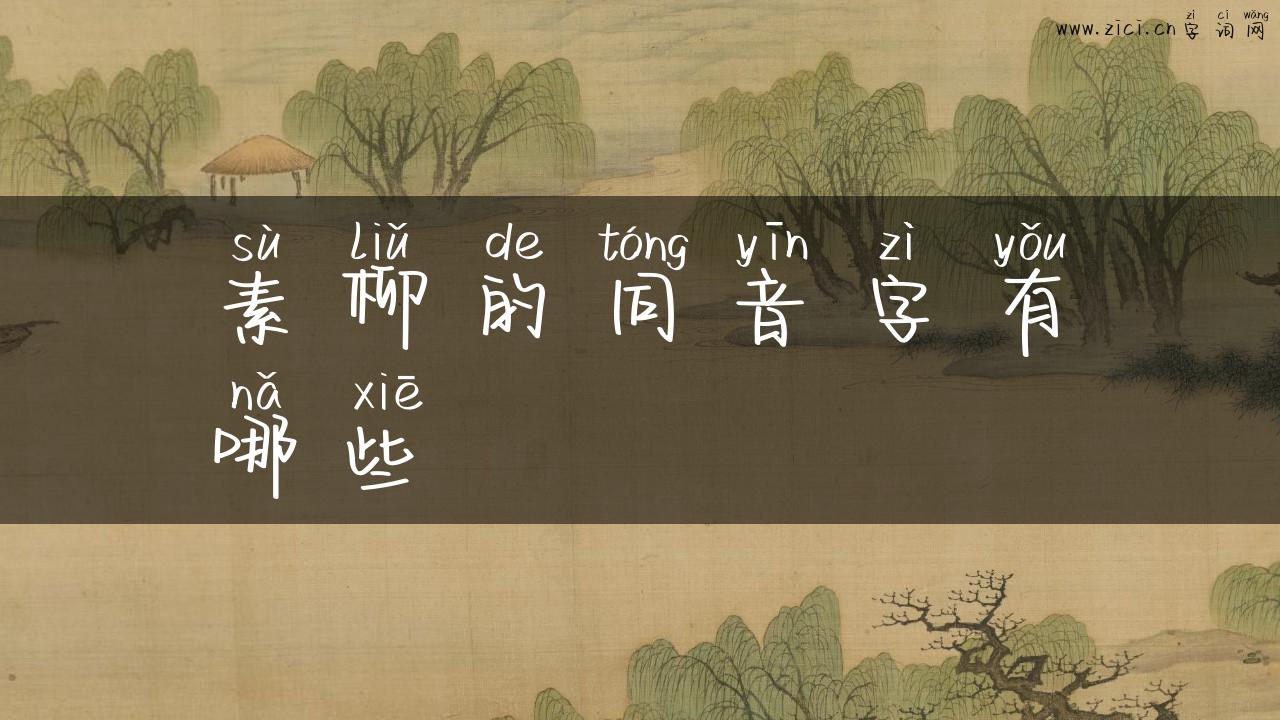 zì cí wǎng
www.zici.cn 字词网
sù liǔ de tóng yīn zì yǒu
素柳的同音字有
nǎ xiē
哪些